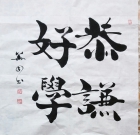 恭謙
好學